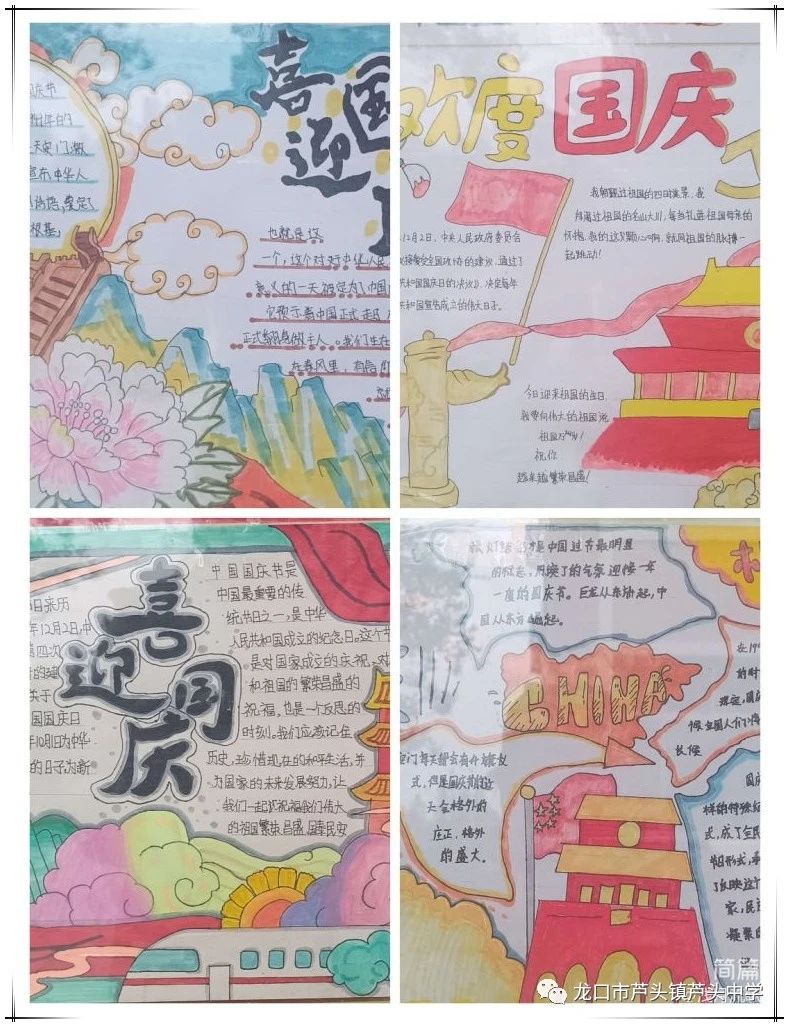 喜迎国
庆节
天安门
宣布,中华人
根基,
也就是这
一个,这个对好中华人民
义的一天被定为了中国
它预示着中国正式走
正式翻身做主人。我们生在
在春风里,有信
欢度国庆
我领略过祖国的四时美景,我
祖国的名山大川,每当扎进祖国母亲的
怀抱,我的这颗心啊,就同祖国的脉搏一
起跳动!
12月2日,中央人民政府委员会
接受全国政协的建议,通过了
共和国国庆日的决议》,决定每年
共和国宣告成立的伟大日子。
今日迎来祖国的生日
我要向伟大的祖国说
祖国万岁!
祝你
越来越繁荣昌盛!
喜迎国庆
日来历
年12月2日,中
第四次
的建
关于
国国庆日
年10月1日为中华
的日子为新
中国国庆节是
中国最重要的传
统节日之一,是中华
人民共和国成立的纪念日。这个节
是对国家成立的庆祝,对
和祖国的繁荣昌盛的
祝福,也是一个反思的
时刻。我们应该记住
历史,珍惜现在的和平生活,并
为国家的未来发展努力,让
我们一起祝福我们伟大
的祖国繁荣昌盛,国泰民安
是中国过节最明显
的标志,
的气氛迎接一年
一度的国庆节。巨龙从东海起,中
国从东方崛起。
CHINA
在19
的时
规定,国庆
候全国人们
长候
门每天都会有升旗仪
式,但是国庆节
天会格外的
庄正,格外
的盛大。
国庆
样的特殊纪
式,成了全民
的形式,承
了反映这个
家,民
凝聚
简篇
龙口市芦头镇芦头中学